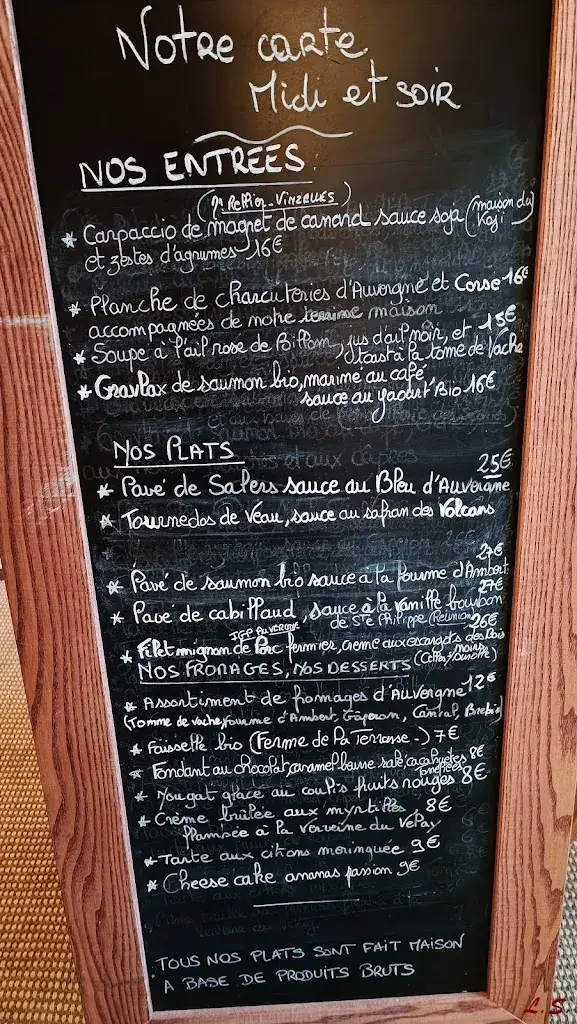 Notre carte
Midi et soir
NOS ENTREES
Carpaccio de magret de canard sauce soja (maison du Koji
et zestes d'agrumes 16€
Planche de charcuteries d'Auvergne et Corse 16€
accompagnées de notre terrine maison
Soupe à l'ail rose de Billom, jus d'ail noir, et 15€
toast à la tome de vache
Gravlax de saumon bio, mariné au café
sauce au yaourt Bio 16€
NOS PLATS
25€
Pavé de Salers sauce au Bleu d'Auvergne
Tournedos de Veau, sauce au safran des Volcans
27€
Pavé de saumon bio sauce à la fourme d'Ambert
27€
Pavé de cabillaud, sauce à la vanille bourbon
de Ste Philippe (Réunion)
26€
IGP AUVERGNE
Filet mignon de Porc fermier, creme aux escargots des Bois
NOS FROMAGES, NOS DESSERTS
Assortiment de fromages d'Auvergne 12€
(Tomme de vache, fourme d'Ambert, Gaperon, Cantal, Brebis)
Faisselle bio (Ferme de la Terrasse) 7€
Fondant au chocolat, caramel beurre salé, cacahuetes 8€
torréfiées
Nougat glace au coulis fruits rouges 8€
Crème brûlée aux myrtilles 8€
flambée à la verveine du Velay
Tarte aux citrons meringuée 9€
Cheese cake ananas passion 9€
TOUS NOS PLATS SONT FAIT MAISON
A BASE DE PRODUITS BRUTS
L.S